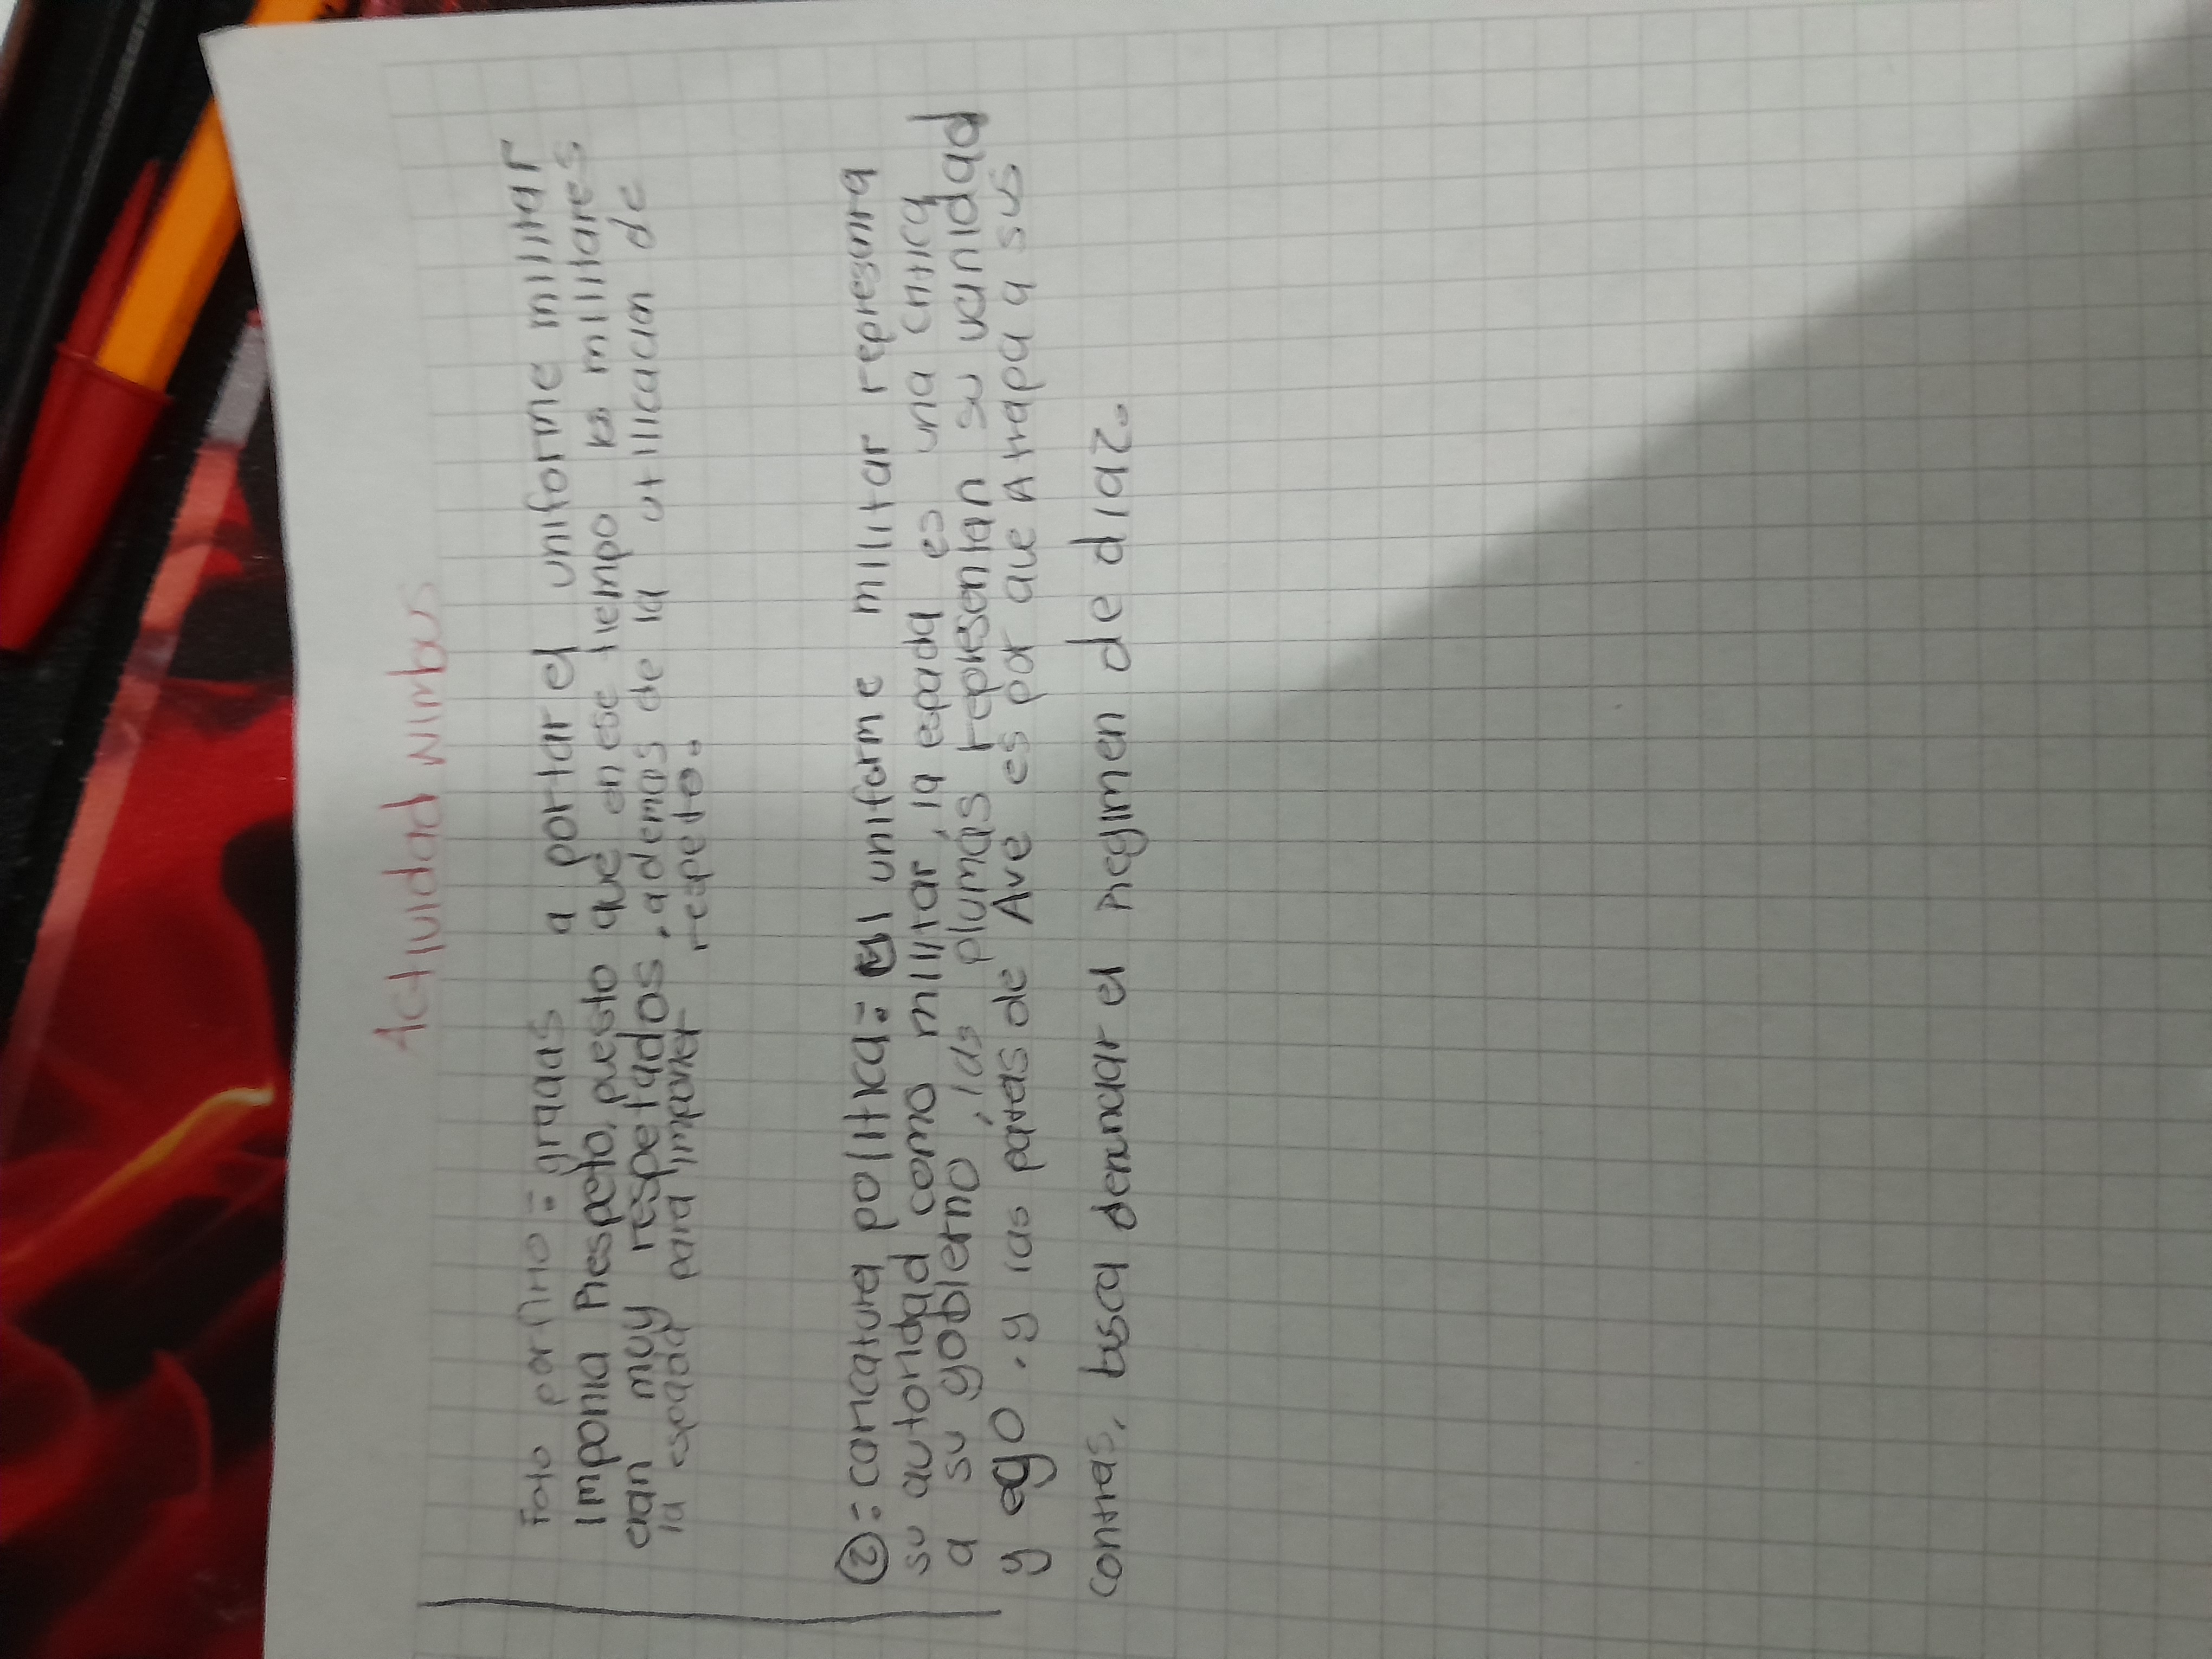 Actividad Nimbus
Foto porfirio: gracias a portar el uniforme militar
imponia Respeto, puesto que en ese tiempo los militares
eran muy respetados, ademas de la utilicacion de
la espada para imponer respeto.
②: caricatura politica: el uniforme militar represnra
su autoridad como militar, la espada es una critica
a su gobierno, las plumas representan su vanidad
y ego. y las patas de Ave es por que Atrapa a sus
contras, busca denunciar el Regimen de diaz.